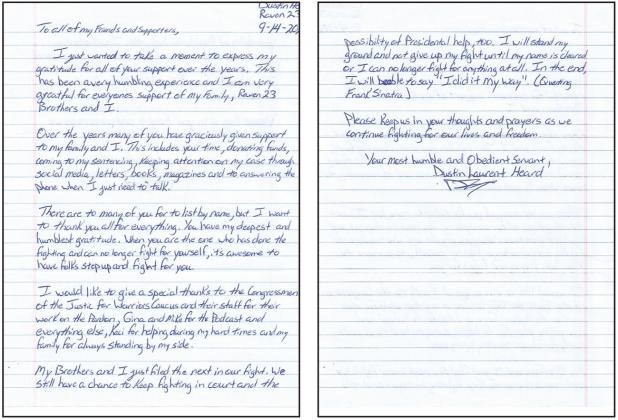 Dustin He
Raven 23
9-14-20
To all of my Friends and Supporters,
I just wanted to take a moment to express my
gratitude for all of your support over the years. This
has been a very humbling experience and I am very
grateful for everyones support of my Family, Raven 23
Brothers and I.
Over the years many of you have graciously given support
to my family and I. This includes your time, donating funds,
coming to my sentencing, Keeping attention on my case through
social media, letters, books, magazines and to answering the
phone when I just need to talk.
There are to many of you for to list by name, but I want
to thank you all for everything. You have my deepest and
humblest gratitude. When you are the one who has done the
fighting and can no longer fight for yourself, its awesome to
have folks step up and fight for you.
I would like to give a special thanks to the Congressmen
of the Justic for Warriors Caucus and their staff for their
work on the Pardon, Gina and Mike for the Podcast and
everything else, Kaci for helping during my hard times and my
family for always standing by my side.
My Brothers and I just filed the next in our fight. We
still have a chance to Keep fighting in court and the
possibility of Presidental help, too. I will stand my
ground and not give up my fight until my name is cleared
or I can no longer fight for anything at all. In the end,
I will be able to say "I did it my way". (Quoting
Frank Sinatra)
Please Keep us in your thoughts and prayers as we
continue fighting for our lives and freedom.
Your most humble and Obedient Servant,
Dustin Laurent Heard